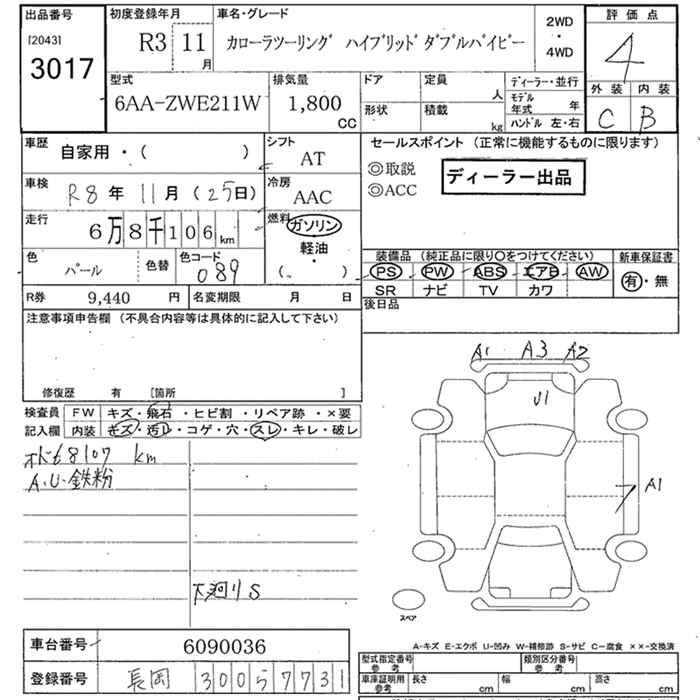 出品番号 初度登録年月 車名・グレード 2WD ・ 4WD 評価点
[2043] 3017 R3 11月 カローラツーリング ハイブリッドダブルバイビー 4
型式 排気量 ドア 定員 人 ディーラー・並行 外装 内装
6AA-ZWE211W 1,800 CC 形状 積載 kg モデル年式 年 ハンドル 左・右 C B
車歴 自家用・( ) シフト AT セールスポイント (正常に機能するものに限ります)
◎取説 ディーラー出品
◎ACC
車検 R8年 11月 (25日) 冷房 AAC
走行 6万8千106km 燃料 ガソリン 軽油・( )
色 パール 色替 色コード 089
装備品 (純正品に限り○をつけてください) 新車保証書
PS PW ABS エアB AW 有・無
SR ナビ TV カワ
R券 9,440円 名変期限 月 日 後日品
注意事項申告欄 (不具合内容等は具体的に記入して下さい)
修復歴 有 [箇所 ]
検査員 FW キズ・飛石・ヒビ割・リペア跡・×要
記入欄 内装 キズ・汚レ・コゲ・穴・スレ・キレ・破レ
A1 A3 A2
U1
68107 km
A.U.鉄粉
A1
下廻りS
スペア
A-キズ E-エクボ U-凹み W-補修跡 S-サビ C-腐食 ××-交換済
車台番号 6090036
登録番号 長岡 300 5 7731
型式指定番号 参考 類別区分番号 参考
車庫証明用 参考 長さ cm 幅 cm 高さ cm